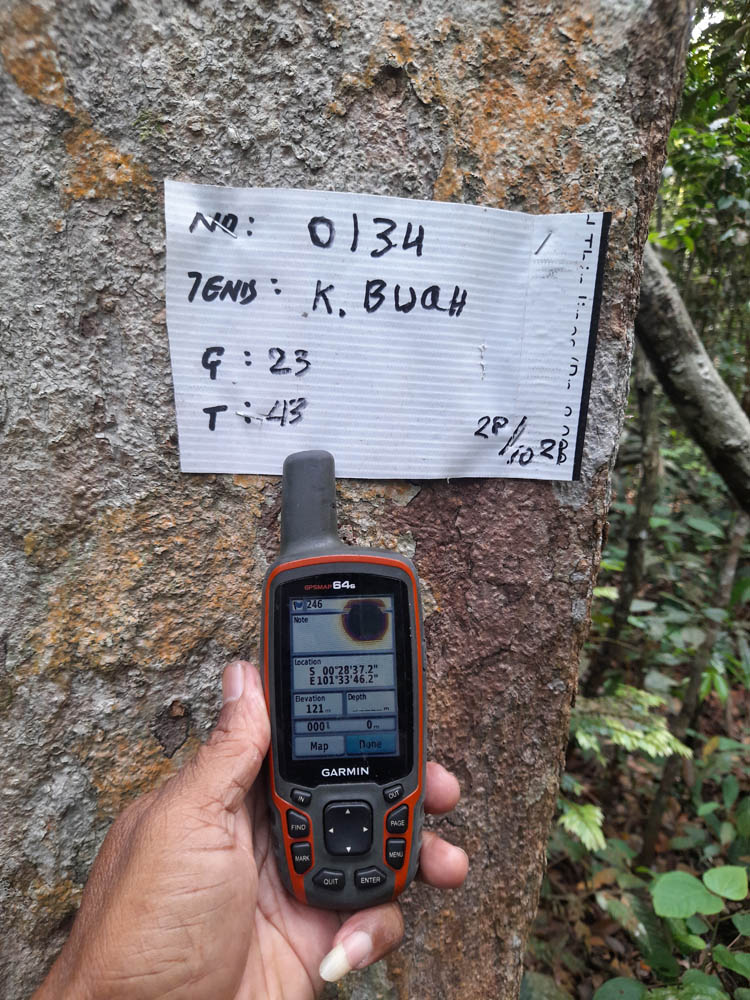 NO: 0134
JENIS: K. BUAH
G: 23
T: 43
28/10 2B
GPSMAP 64s
246
Note
Location
S 00°28'37.2"
E101°33'46.2"
Elevation Depth
121m ______m
000° 0m
Map Done
GARMIN
IN OUT
FIND PAGE
MARK MENU
QUIT ENTER